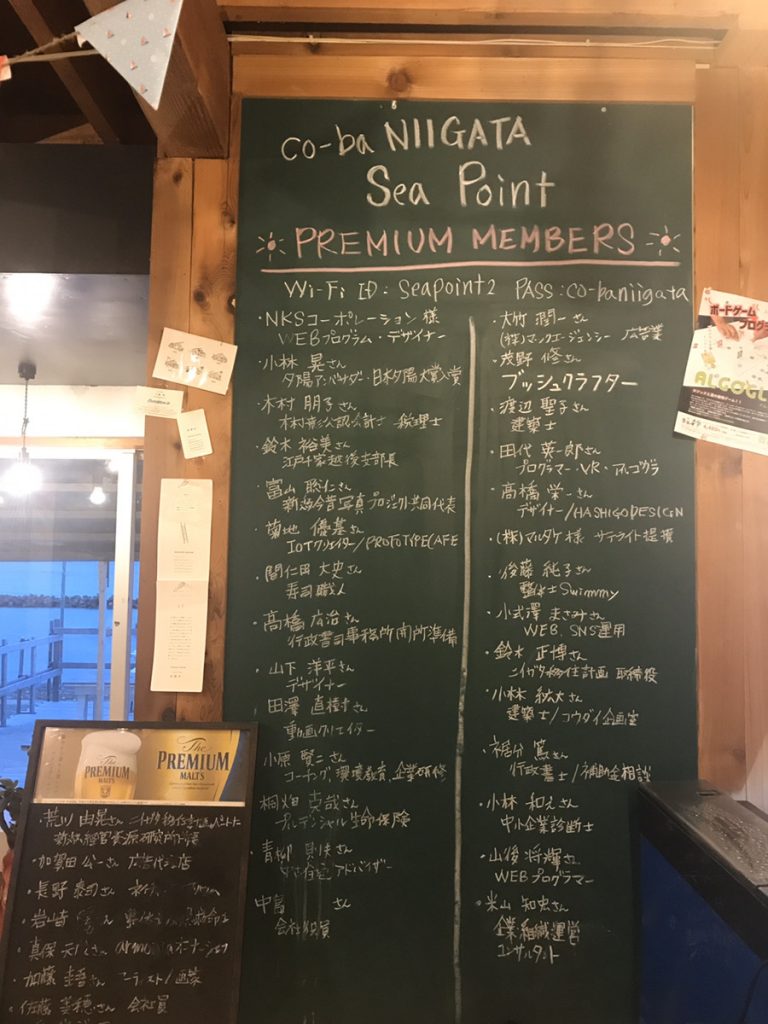 co-ba NIIGATA
Sea Point
PREMIUM MEMBERS
Wi-Fi ID : Seapoint2 PASS : co-baniigata
・NKSコーポレーション 様
WEBプログラム・デザイナー
・小林 晃さん
夕陽アンバサダー・日本夕陽大賞入賞
・木村 朋子さん
税理士
・鈴木 裕美さん
江戸千家越後支部長
・富山 聡仁さん
新潟今昔写真プロジェクト共同代表
・菊地 優基さん
IOTクリエイター/PROTOTYPECAFE
・間仁田 大史さん
寿司職人
・高橋 広治さん
行政書司事務所開所準備
・山下 洋平さん
デザイナー
・田澤 直樹さん
動画クリエイター
・小原 賢二さん
コーチング、環境教育、企業研修
・桐畑 克哉さん
プルデンシャル生命保険
・青柳 さん
アドバイザー
・中畠 さん
会社役員
・大竹 潤一さん
(株)マックエージェンシー 広告業
・茂野 修さん
ブッシュクラフター
・渡辺 聖子さん
建築士
・田代 英一郎さん
プログラマー・VR・アルゴグラ
・高橋 栄一さん
デザイナー/HASHIGODESIGN
・(株)マルタケ 様 サテライト提携
・後藤 純子さん
Swimmy
・小式澤 まさみさん
WEB、SNS運用
・鈴木 正博さん
ニイガタ移住計画 取締役
・小林 紘大さん
建築士/コウダイ企画室
・裾分 篤さん
行政書士/補助金相談
・小林 和えさん
中小企業診断士
・山後 将輝さん
WEBプログラマー
・米山 和宏さん
企業組織運営
コンサルタント
ボードゲーム
プログラ
ALGOGU
The
PREMIUM
MALT'S
The
PREMIUM
MALT'S
・荒川 由晃さん ニイガタ移住計画
新潟経営資源研究所
・加賀田 公一さん 広告代理店
・長野 泰司さん
・岩崎
・真保
・加藤 圭吾さん /画家
・佐藤 美穂さん 会社員